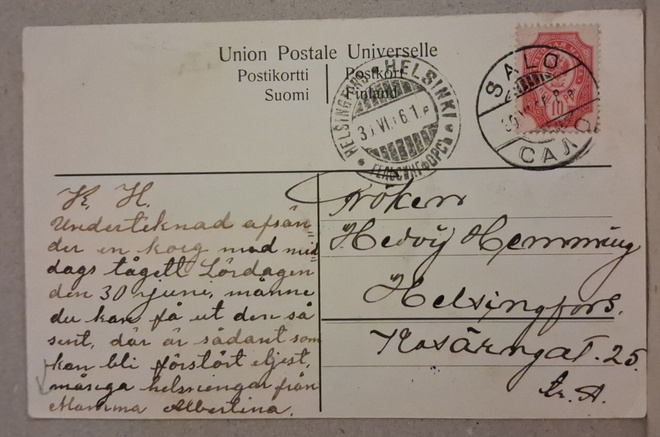 Union Postale Universelle
Postikortti Postkort
Suomi Finland
HELSINGFORS HELSINKI
ГЕЛЬСИНГФОРСЪ
VI 6 1
SALO
САЛО
10
K. H.
Underteknad afsän=
der en korg med mid
dags tågett Lördagen
den 30 juni, månne
du kan få ut den så
sent, där är sådant som
kan bli förstört eljest,
många helsningar från
Mamma Albertina.
Fröken
Hedvig Hemming
Helsingfors.
25.
Tr. A.